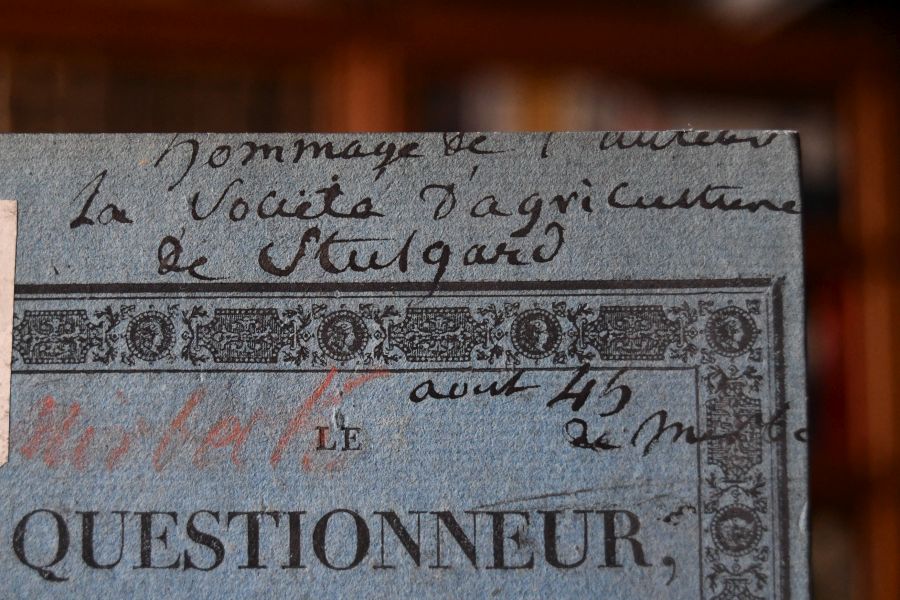 hommage de l'auteur
La Société D'agriculture
de Stutgard
aout 45
de Mirb
Mirbek
LE
QUESTIONNEUR,